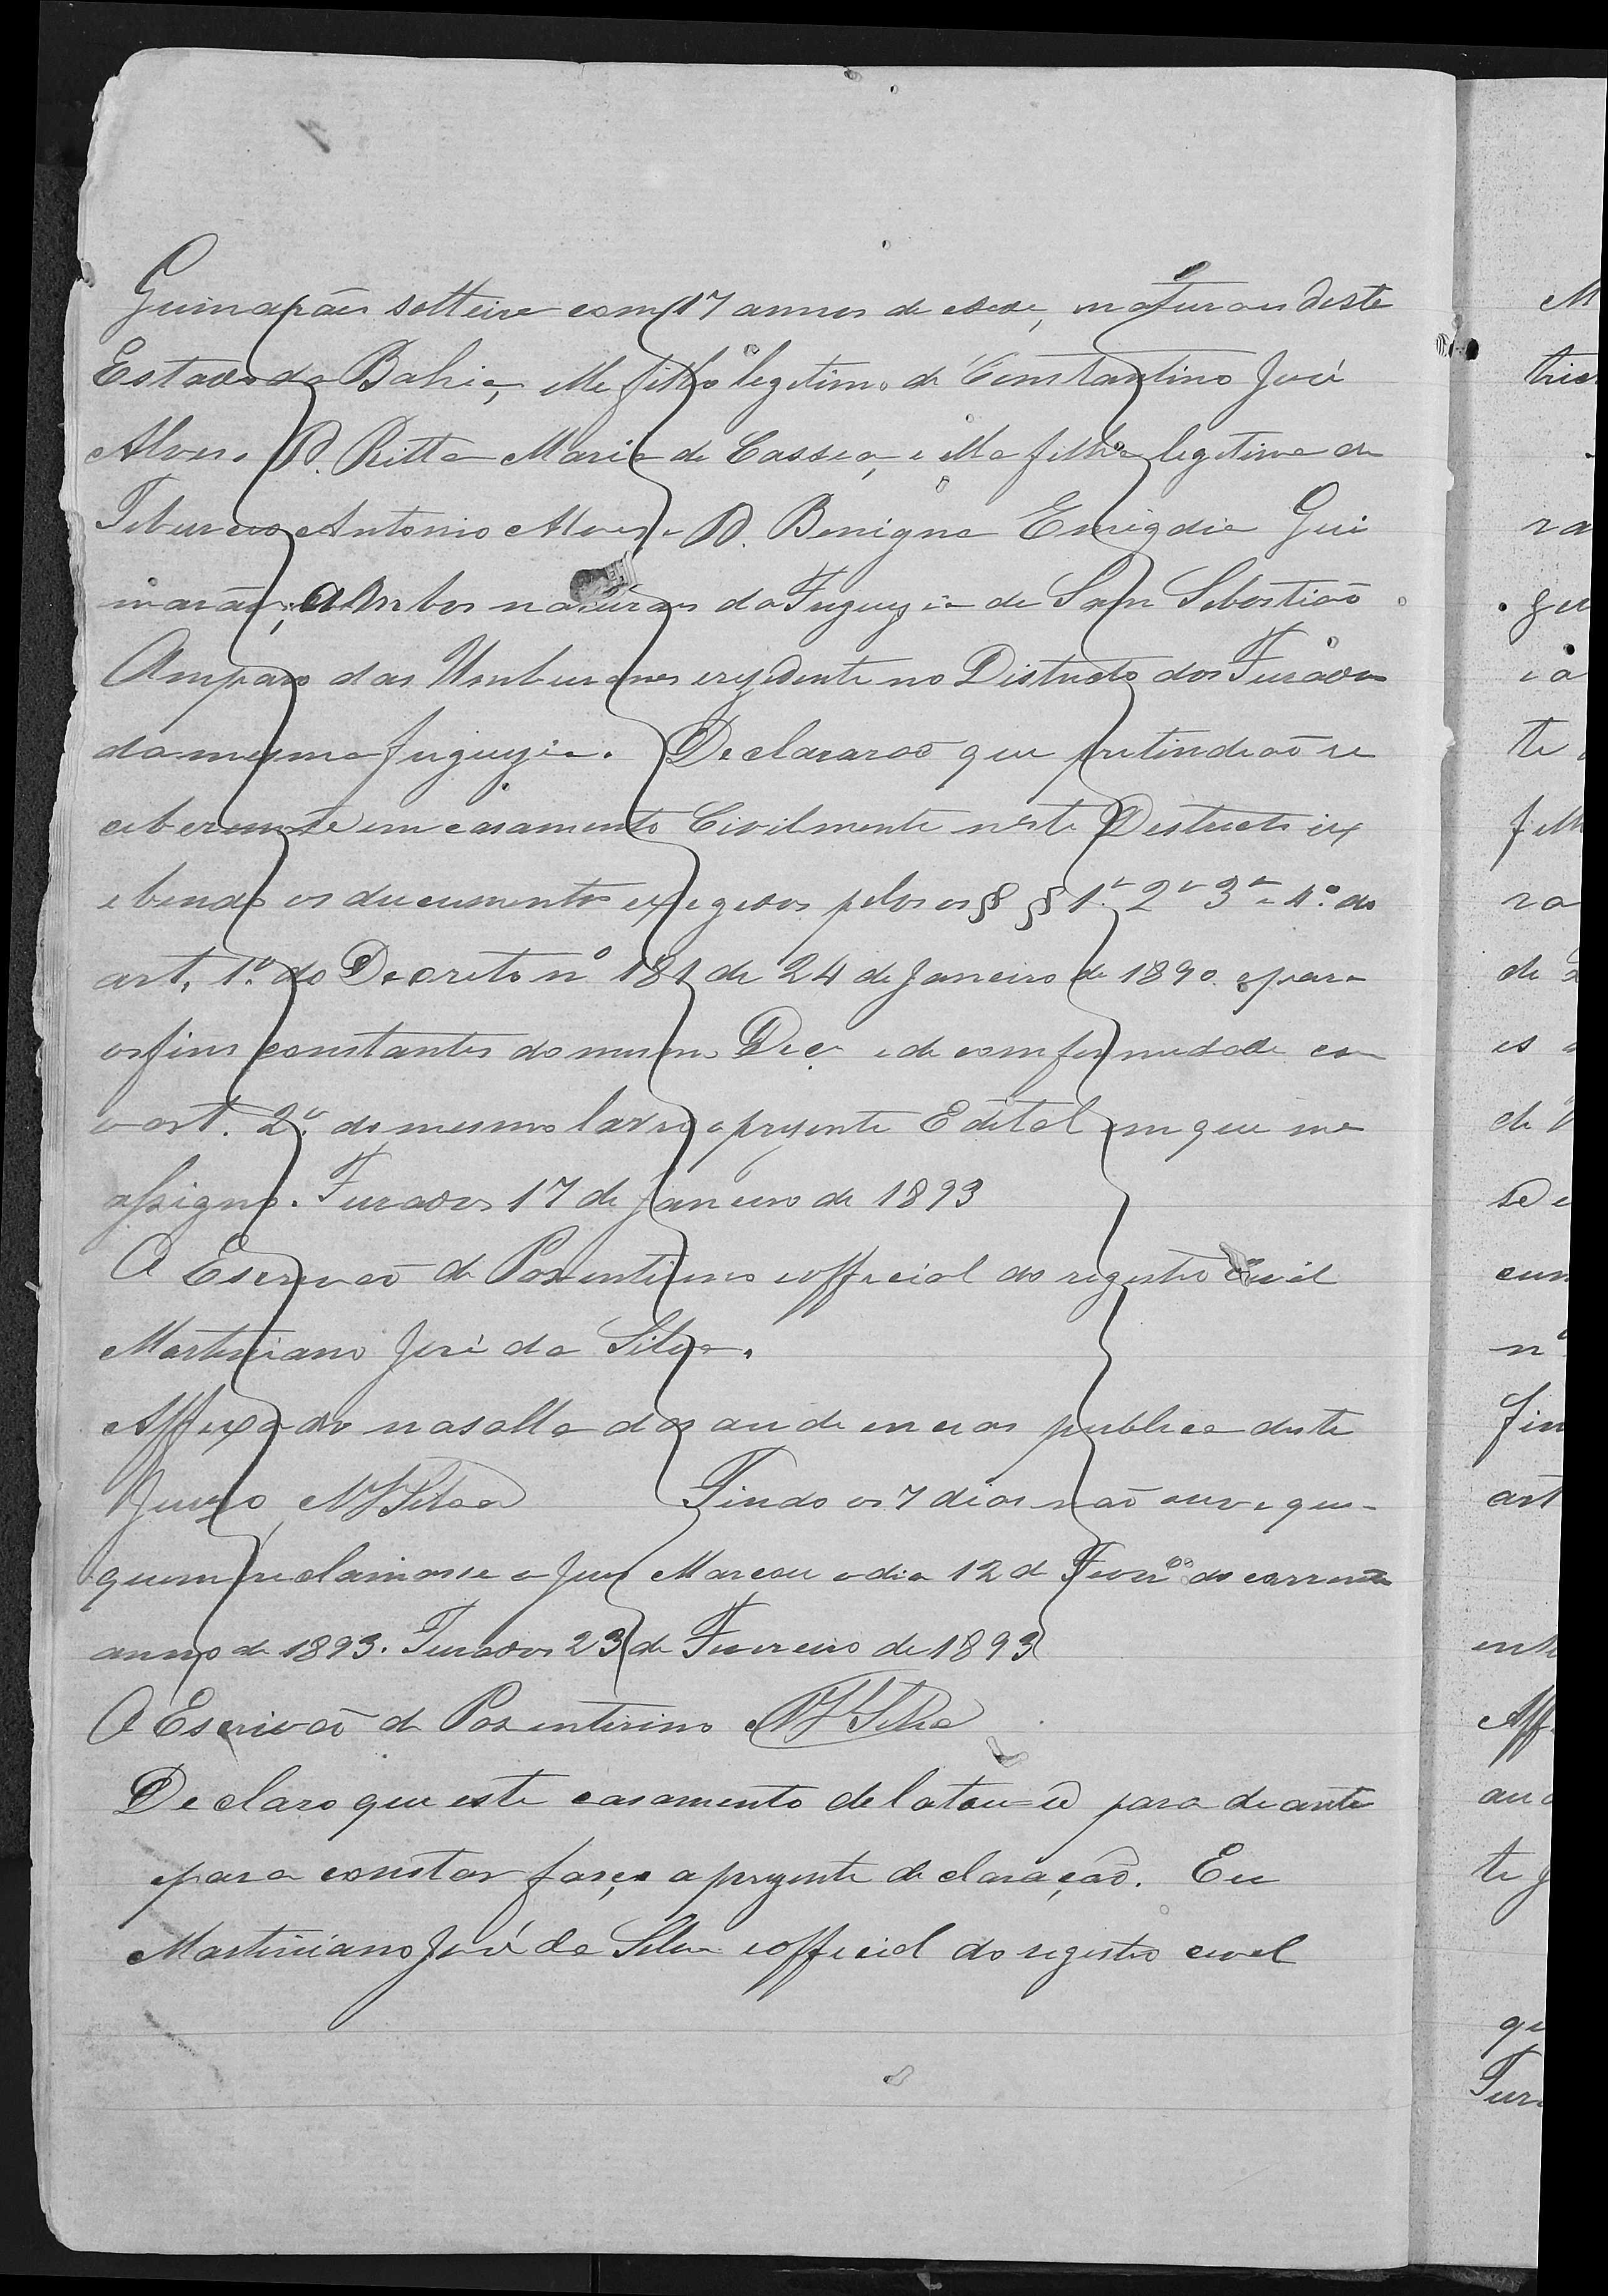 Guimarães solteira com 17 annos de edade, naturaes deste
Estado da Bahia, elle filho legitimo de Constantino José
Alves e D. Ritta Maria de Cassea, e ella filha legitima de
Teburcio Antonio Alves e D. Benigna Emigdia Gui
marães, ambos naturaes da Freguezia de San Sebastião
Amparo das Umburanas e rezidente no Districto dos Furados
da mesma freguezia. Declararaõ que pretindiaõ re
ceberem-se em casamento Civilmente neste Destricto ix
ebendo os documentos exegedos pelos os §§ 1º 2º 3º e 4º do
art. 1º do Decreto nº 181 de 24 de Janeiro de 1890 e para
os fins constantes do mesmo Dec. e de comformedade com
o art. 2º do mesmo lavrei o prezente Edital em que me
assigno. Furados 17 de Janeiro de 1893
O Escrivaõ de Paz entirino e official do registro Civil
Martiniano José da Silva.
Affixado na salla das audiencias publica deste
Juizo MJSilva Findo os 7 dias naõ ouve quem
quem reclamasse o Juiz Marcou o dia 12 de Fevrº do corrente
anno de 1893. Furados 23 de Fevreiro de 1893
O Escrivaõ de Paz interino MJSilva
Declaro que este casamento delatou-se para deante
e para constar faço a prezente declaração. Eu
Martiniano José da Silva e official do registro cevel
M
tric
ra
ger
ia
te
filh
ra
de
es
de
se
nº
fin
art
Aff
te
Fur